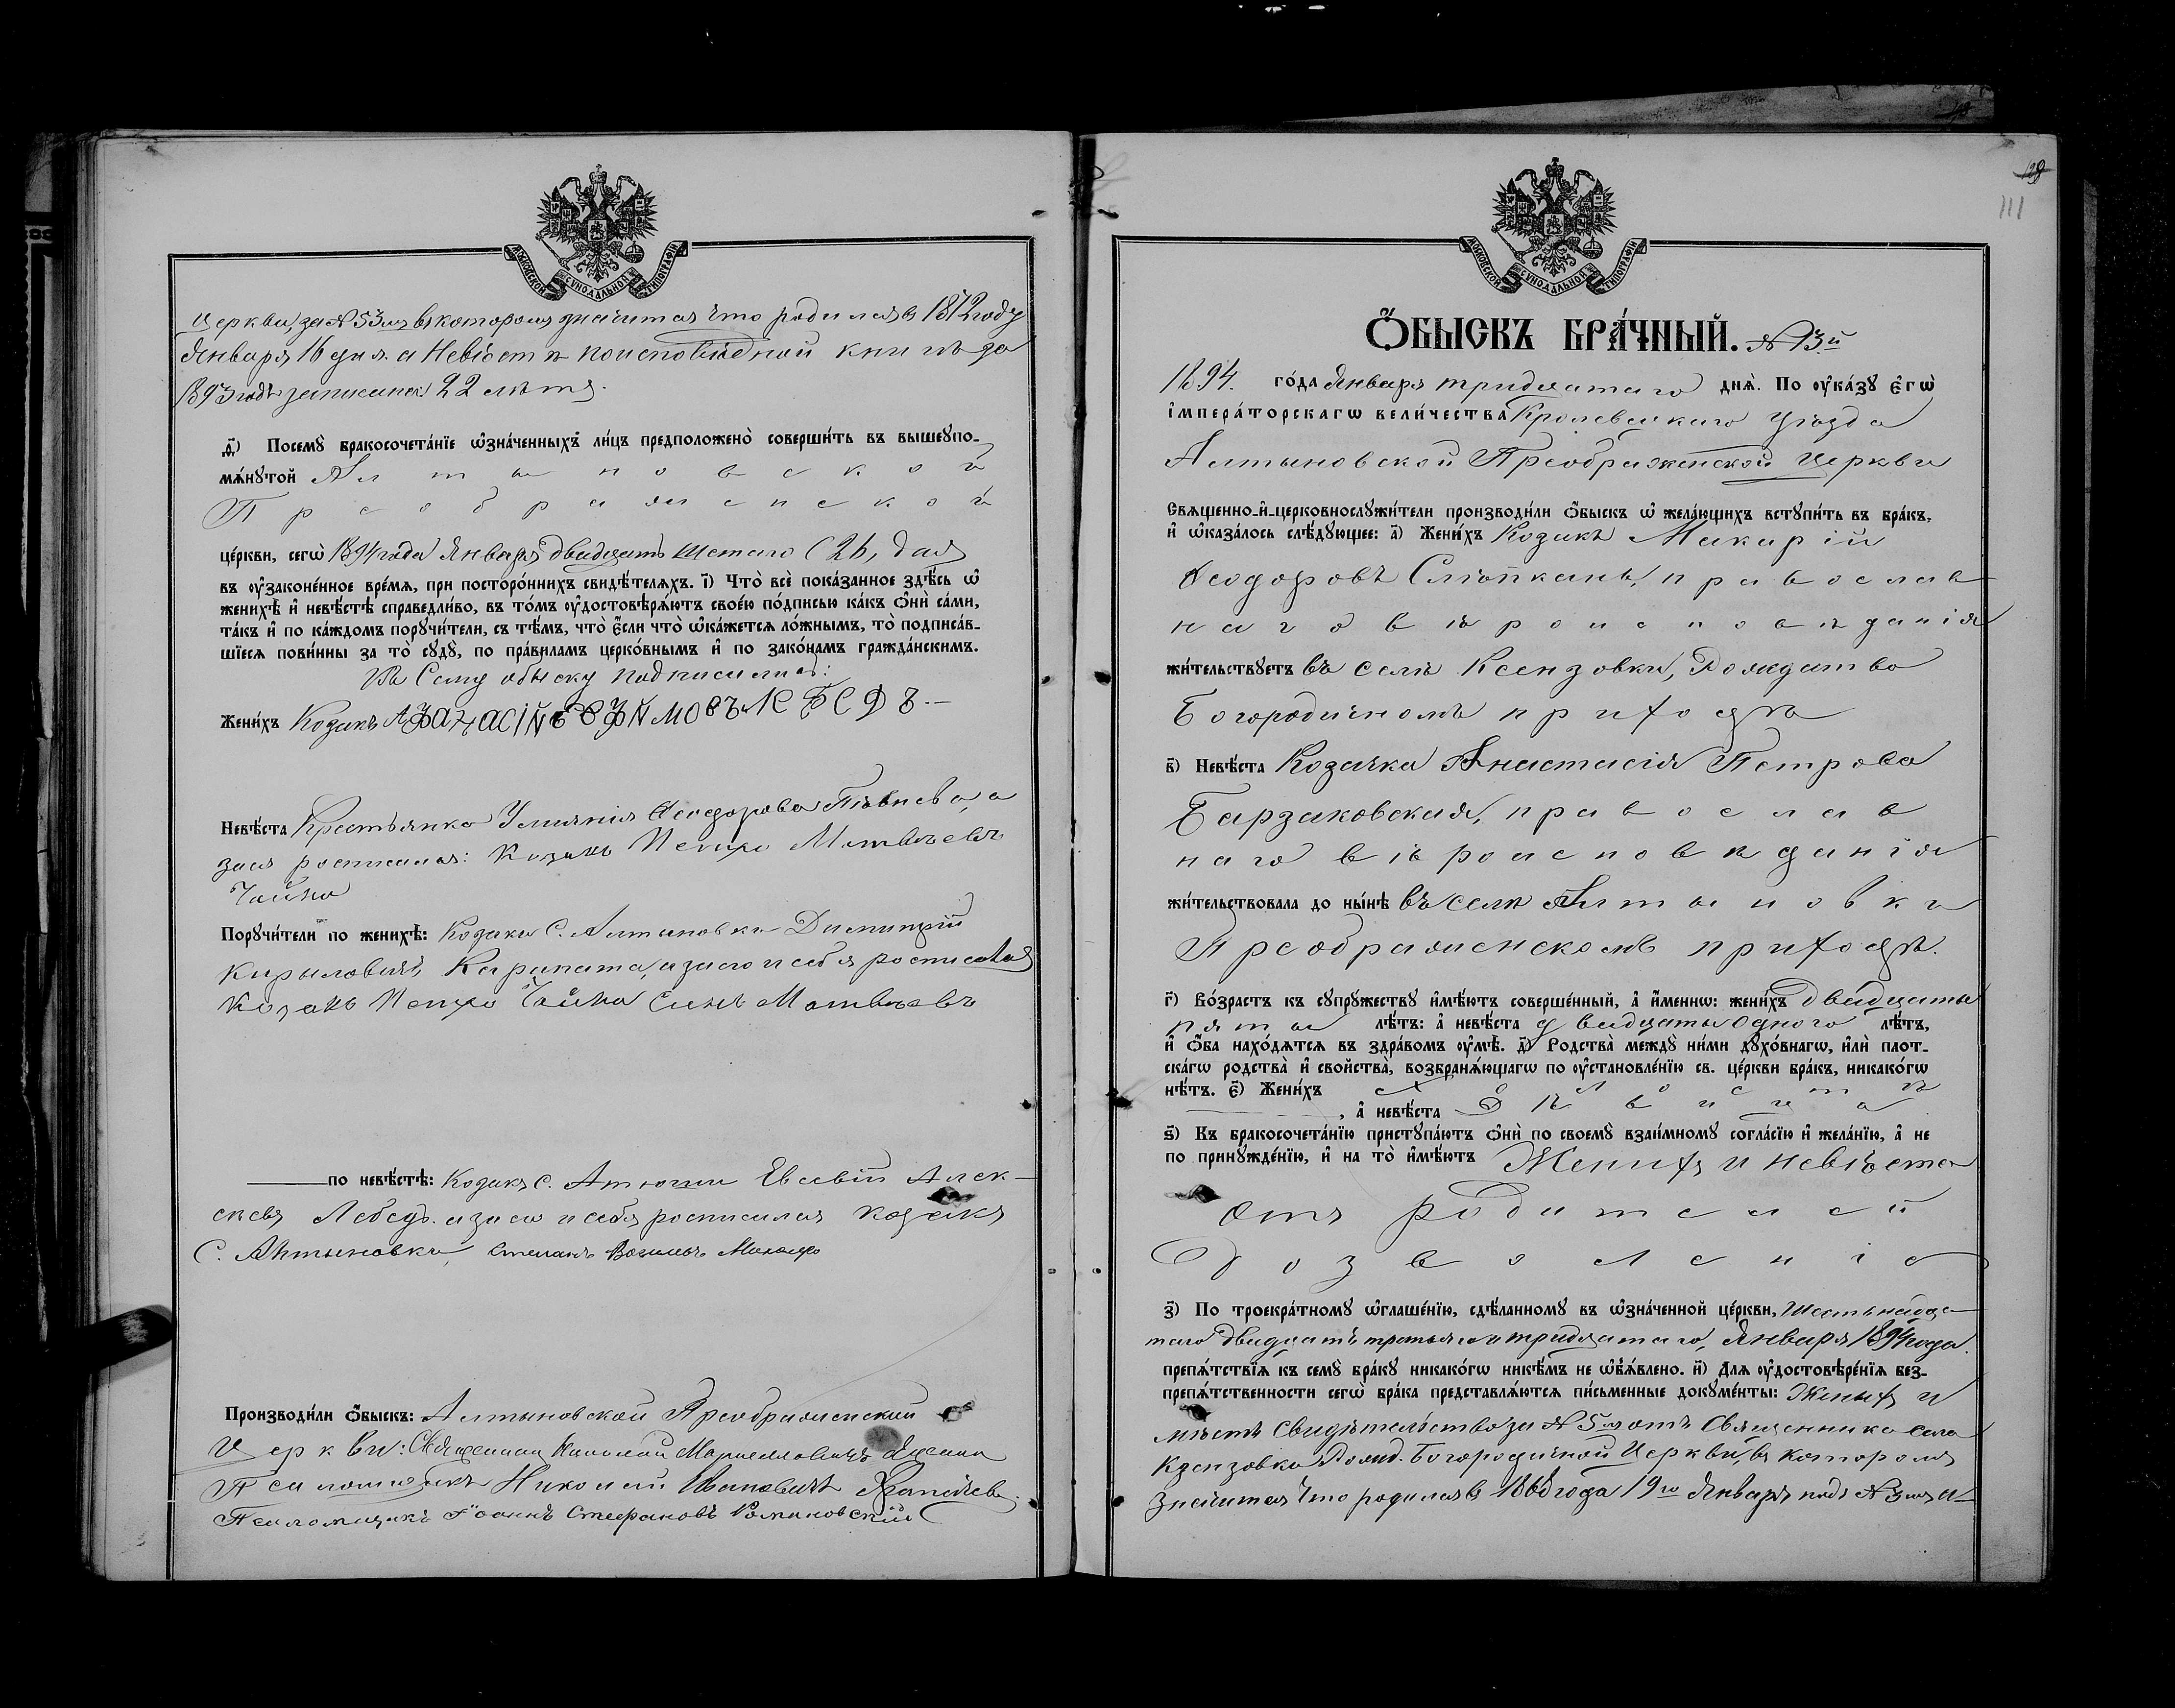 МОСКОВСКОЙ СѴНОДАЛЬНОЙ ТИПОГРАФІИ
церкви, за № 53 мъ въ которомъ значится что родился въ 1872 году
Января 16 дня. а Невіста по исповѣдной книгѣ за
1893 годъ записана 22 лѣтъ.
ѳ҃) Посемꙋ бракосочета́нїе ѡ҆зна́ченныхъ ли́цъ предположено̀ соверши́ть въ вышеꙋпо-
мѧ́нꙋтой Алтыновской
Преображенской
це́ркви, сегѡ̀ 1894 года Января двадцать шестаго (26) дня
въ ᲂу҆законе́нное вре́мѧ, при посторо́ннихъ свидѣ́телѧхъ. і҃) Что̀ всѐ пока́занное здѣ́сь ѡ҆
женихѣ̀ и҆ невѣ́стѣ справедли́во, въ то́мъ ᲂу҆достовѣрѧ́ютъ свое́ю по́дписью ка́къ ѻ҆нѝ са́ми,
та́къ и҆ по ка́ждомъ порꙋчи́тели, съ тѣ́мъ, что̀ є҆́сли что̀ ѡ҆ка́жетсѧ ло́жнымъ, то̀ подписа́в-
шїесѧ пови́нны за то̀ сꙋдꙋ̀, по пра́виламъ церко́внымъ и҆ по зако́намъ гражда́нскимъ.
Къ Сему обыску подписались:
Жени́хъ Козакъ Афанасій Ефимовъ Лебедь.—
Невѣ́ста Крестьянка Ульянія Ѳеодорова а
за росписался: Козакъ Петро Матвѣевъ
Чайка
Порꙋчи́тели по женихѣ̀: Козаки С. Алтыновки Димитрій
Кириловъ а за него и себя росписался
Козакъ Петро Чайка Сынъ Матвѣевъ
по невѣ́стѣ: Козакъ С. Евсевій Алек-
сѣевъ Лебедь. а за него и себя росписался козакъ
С. Алтыновки, Степанъ
Производи́ли ѻ҆́быскъ: Алтыновской Преображенской
Церкви: Священникъ Николай
Псаломщикъ Николай Ивановичъ
Псаломщикъ Іоаннъ Стефановъ Романовскій
111
МОСКОВСКОЙ СѴНОДАЛЬНОЙ ТИПОГРАФІИ
Ѻ҆́БЫСКЪ БРА́ЧНЫЙ. № 13й
1894. го́да Января тридцатаго днѧ̀. По ᲂу҆ка́зꙋ є҆гѡ̀
і҆мпера́торскагѡ вели́чества Кролевецкаго Уѣзда
Алтыновской Преображенской Церкви
Свѧщенно-и҆-церковнослꙋжи́тели производи́ли ѻ҆́быскъ ѡ҆ жела́ющихъ встꙋпи́ть въ бра́къ,
и҆ ѡ҆каза́лось слѣ́дꙋющее: а҃) Жени́хъ Козакъ Макарій
Ѳеодоровъ православ
наго вѣроисповѣданія
жи́тельствꙋетъ въ селѣ Ксензовки, Рождество
Богородичномъ приходѣ
в҃) Невѣ́ста Козачка Анастасія Петрова
Барзаковская, православ
наго вѣроисповѣданія
жи́тельствовала до ны́нѣ въ селѣ Алтыновки
Преображенскомъ приходѣ.
г҃) Во́зрастъ къ сꙋпрꙋ́жествꙋ и҆мѣ́ютъ соверше́нный, а҆ и҆́меннѡ: жени́хъ двадцати
пяти лѣ́тъ: а҆ невѣ́ста двадцати одного лѣ́тъ,
и҆ ѻ҆́ба нахо́дѧтсѧ въ здра́вомъ ᲂу҆мѣ̀. д҃) Родства̀ междꙋ̀ ни́ми дꙋхо́внагѡ, и҆лѝ плот-
ска́гѡ родства̀ и҆ свойства̀, возбранѧ́ющагѡ по ᲂу҆становле́нїю св. це́ркви бра́къ, никако́гѡ
нѣ́тъ. є҃) Жени́хъ холостъ
, а҆ невѣ́ста дѣвица
ѕ҃) Къ бракосочета́нїю пристꙋпа́ютъ ѻ҆нѝ по своемꙋ̀ взаи́мномꙋ согла́сїю и҆ жела́нїю, а҆ не
по принꙋжде́нїю, и҆ на то̀ и҆мѣ́ютъ Женихъ и невіста
отъ родителей
дозволеніе
з҃) По троекра́тномꙋ ѡ҆глаше́нїю, сдѣ́ланномꙋ въ ѡ҆зна́ченной це́ркви, шестьнадца
таго двадцать третьяго и тридцатаго, Января 1894 года.
препѧ́тствїѧ къ семꙋ̀ бра́кꙋ никако́гѡ никѣ́мъ не ѡ҆б̾ѧ́влено. и҃) Длѧ ᲂу҆достовѣре́нїѧ без-
препѧ́тственности сегѡ̀ бра́ка представлѧ́ютсѧ пи́сьменные докꙋме́нты: Женихъ и
мѣетъ Свидѣтельство за № 5мъ отъ Священника села
Кзензовки Рожд. Богородичной Церкви, въ которомъ
значится что родился въ 1868 года 19го Января подъ № 3мъ а